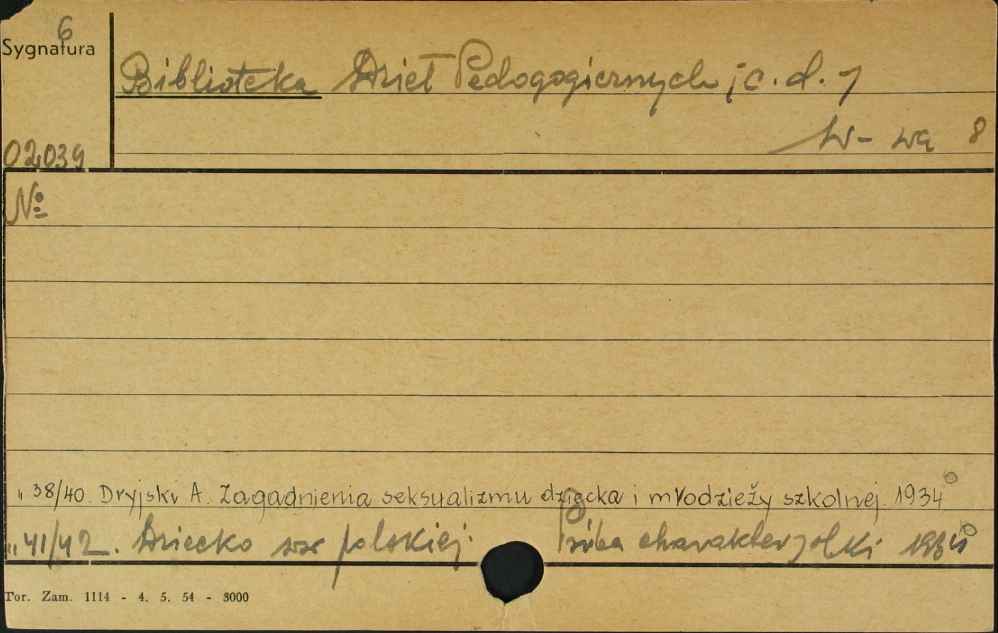 6
Sygnatura
Biblioteka Dzieł Pedagogicznych; c. d. 7
W-wa 8
02039
№
" 38/40. Dryjski A. Zagadnienia seksualizmu dziecka i młodzieży szkolnej. 1934
" 41/42. Dziecko polskiej. Próba 1934
Tor. Zam. 1114 - 4. 5. 54 - 3000